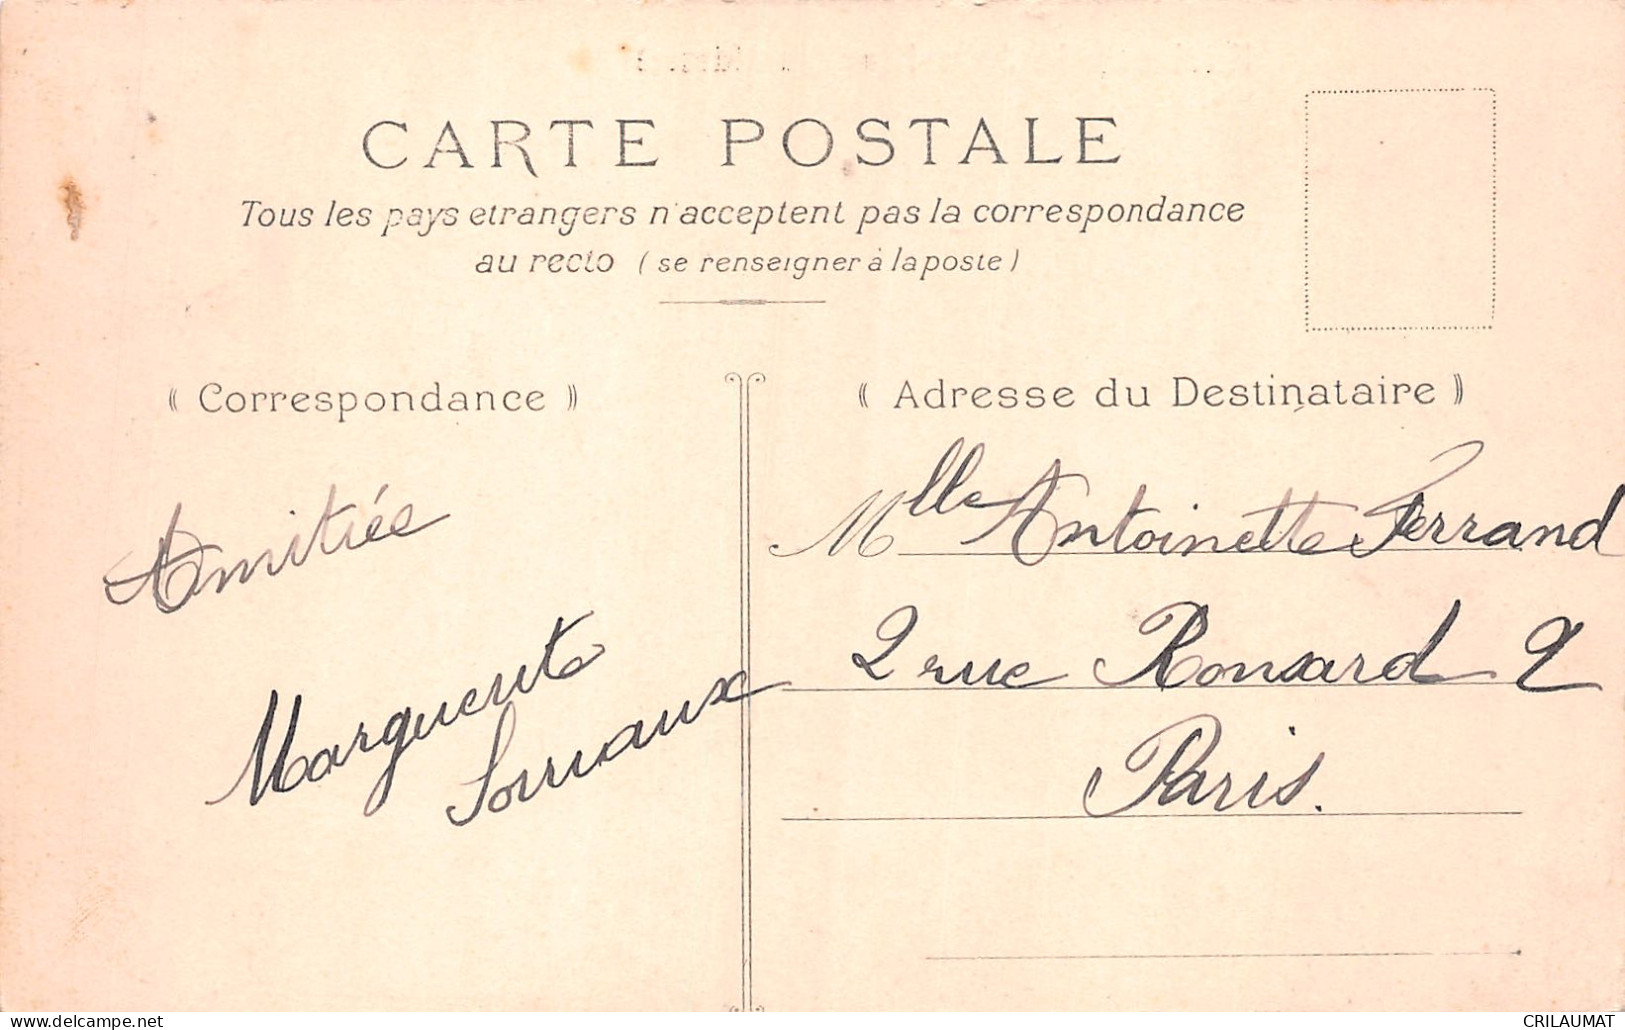 CARTE POSTALE
Tous les pays etrangers n'acceptent pas la correspondance
au recto (se renseigner à la poste)
« Correspondance »
« Adresse du Destinataire »
Amitiée
Marguerite
Mlle Antoinette Ferrand
2 rue Ronsard 2
Paris.
delcampe.net
CRILAUMAT